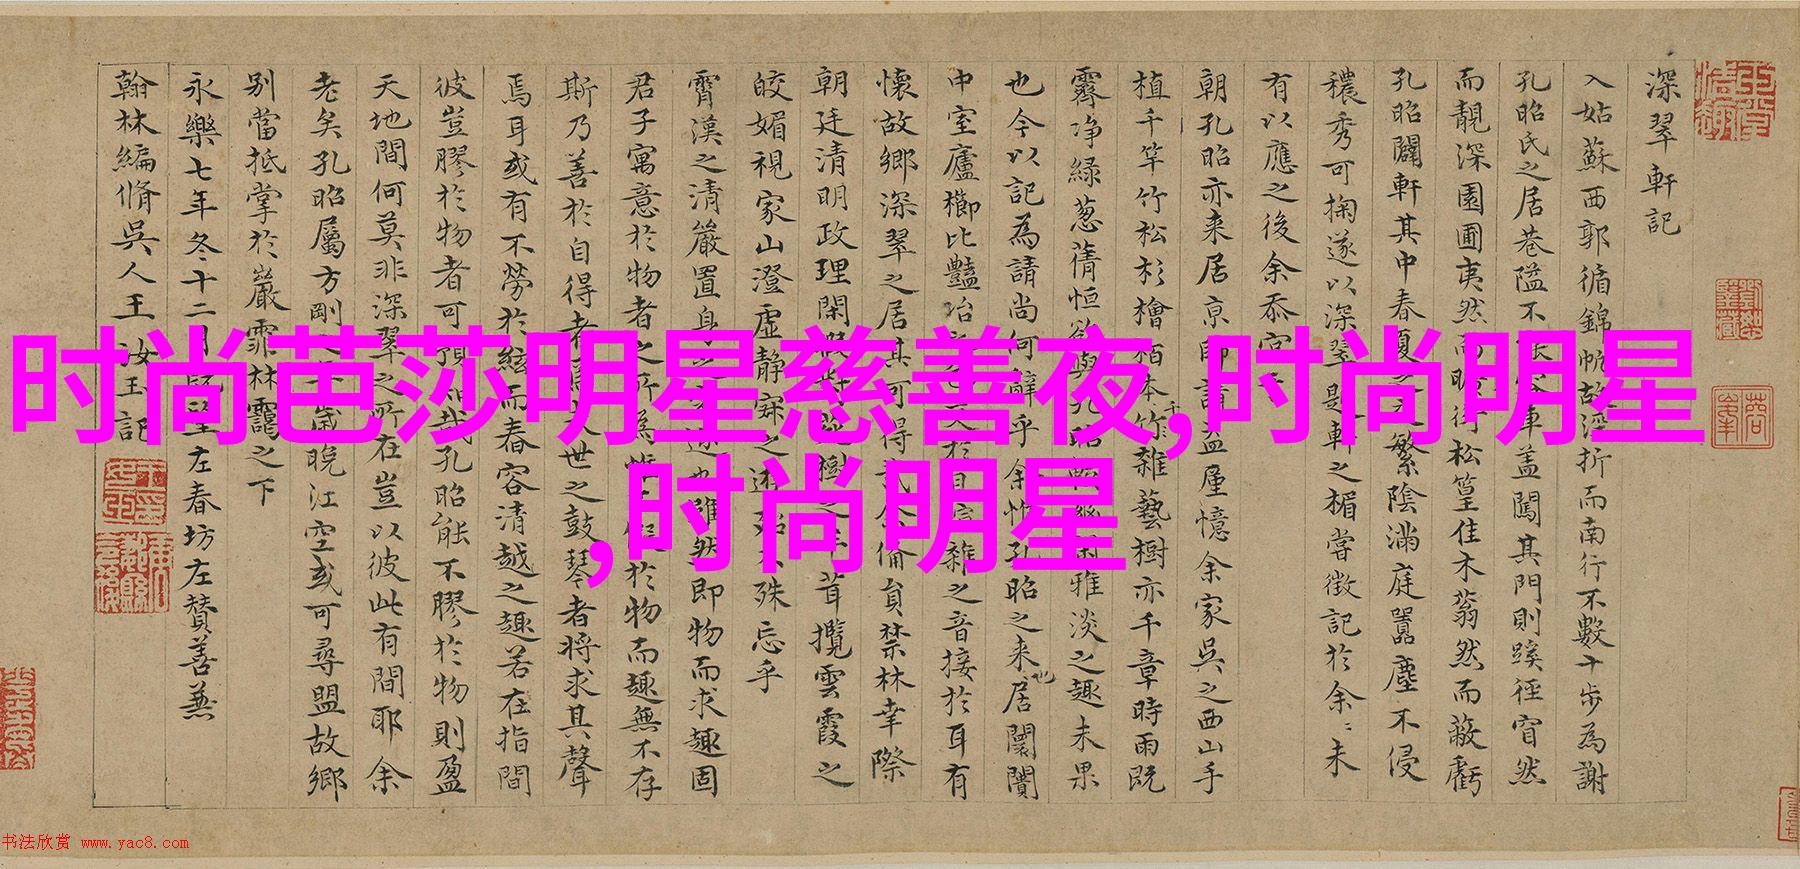 深翠軒記
入姑蘇西郭循錦帆故涇折而南行不數十步為謝
孔昭氏之居巷隘不
車蓋闖其門則蹊徑窅然
而靚深園圃夷然而
松篁佳木蓊然而蔽虧
孔昭闢軒其中春夏之
繁陰滿庭嚚塵不侵
穠秀可掬遂以深翠是軒之楣嘗徵記於余〻未
有以應之後余忝
朝孔昭亦来居京師
憶余家吳之西山手
植千竿竹松杉檜栢本竹雜藝樹亦千章時雨既
霽净緑葱蒨恒欲與孔昭
雅淡之趣未果
也今以記為請尚何辭乎余惟孔昭之来居闤闠
中室廬櫛比豔冶
雜之音接於耳有
懷故鄉深翠之居其可得
禁林幸際
朝廷清明政理閑暇
茸攬雲霞之
皎媚視家山澄虚静
殊忘乎
霄漢之清嚴置身
即物而求趣固
君子寓意於物者之所為
於物而趣無不存
斯乃善於自得者
世之鼓琴者将求其聲
焉耳或有不勞於絃而春容清越之趣若在指間
彼豈膠於物者可
哉孔昭能不膠於物則盈
天地間何莫非深翠之所在豈以彼此有間耶余
老矣孔昭屬方剛
歲晚江空或可尋盟故鄉
别當抵掌於巖霏林靄之下
永樂七年冬十二月
左春坊左贊善兼
翰林編脩吳人王汝玉記
时尚芭莎明星慈善夜,时尚明星
,时尚明星
书法欣赏 www.yac8.com